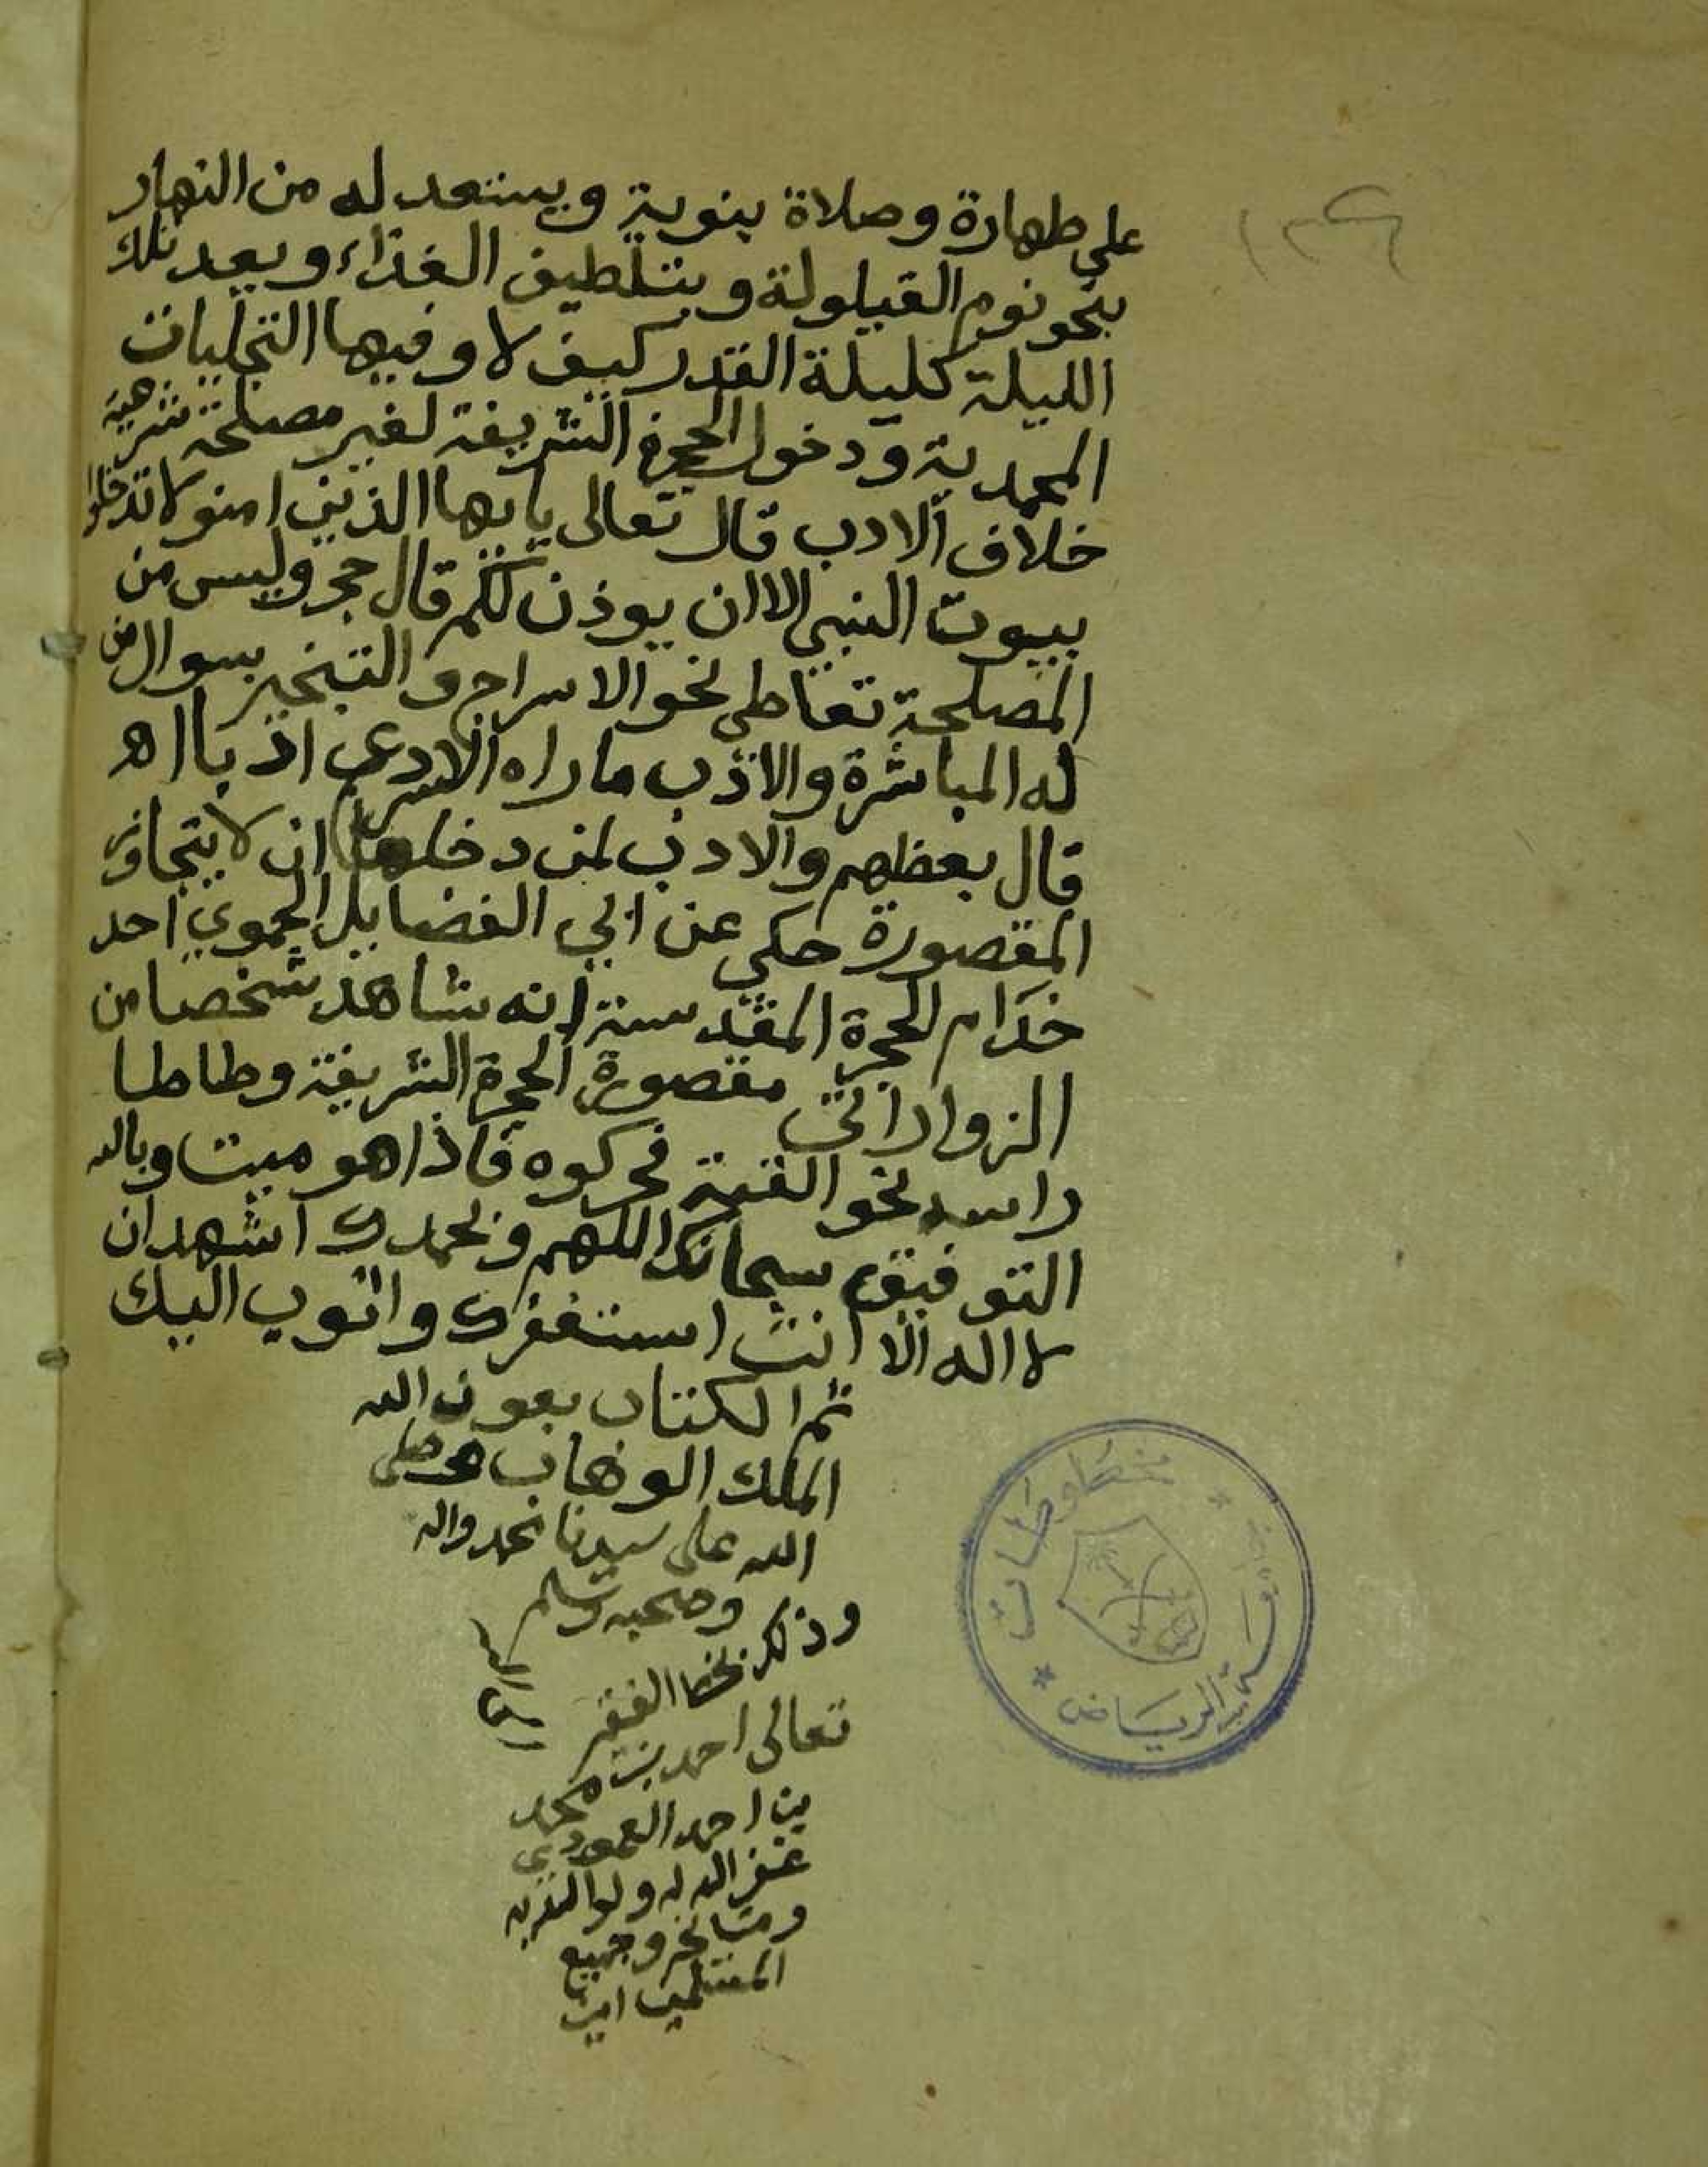 ١٣٩
على طهارة وصلاة بنوية ويستعد له من النهار
بنحو نوم القيلولة وبتلطيف الغذاء ويعد تلك
الليلة كليلة القدر كيف لا وفيها التجليات
المحمدية ودخول الحجرة الشريفة لغير مصلحة شرعية
خلاف الادب قال تعالى يايها الذين امنو لا تدخلوا
بيوت النبي الا ان يوذن لكم قال حجر وليس من
المصلحة تعاطي نحو الاسراج والتبخير بسوال من
له المباشرة والادب ما راه الاسرع اذ باا اه
قال بعظهم والادب لمن دخلها ان لا يتجاوز
المقصورة حكي عن ابي الفضايل الحموي احد
خدام الحجرة المقدسة انه شاهد شخصا من
الزوار اتى مقصورة الحجرة الشريفة وطاطا
راسه نحو القبة فحركوه فاذا هو ميت وبالله
التوفيق سبحانك اللهم وبحمدك اشهد ان
لا اله الا انت استغفرك واتوب اليك
تم الكتاب بعون الله
الملك الوهاب وصلى
الله على سيدنا محمد واله
وصحبه وسلم
وذلك بخط الفقير
تعالى احمد بن محمد
بن احمد العمودي
غفر الله له ولوالديه
ومشايخه وجميع
المسلمين امين
مخطوطات
الرياض